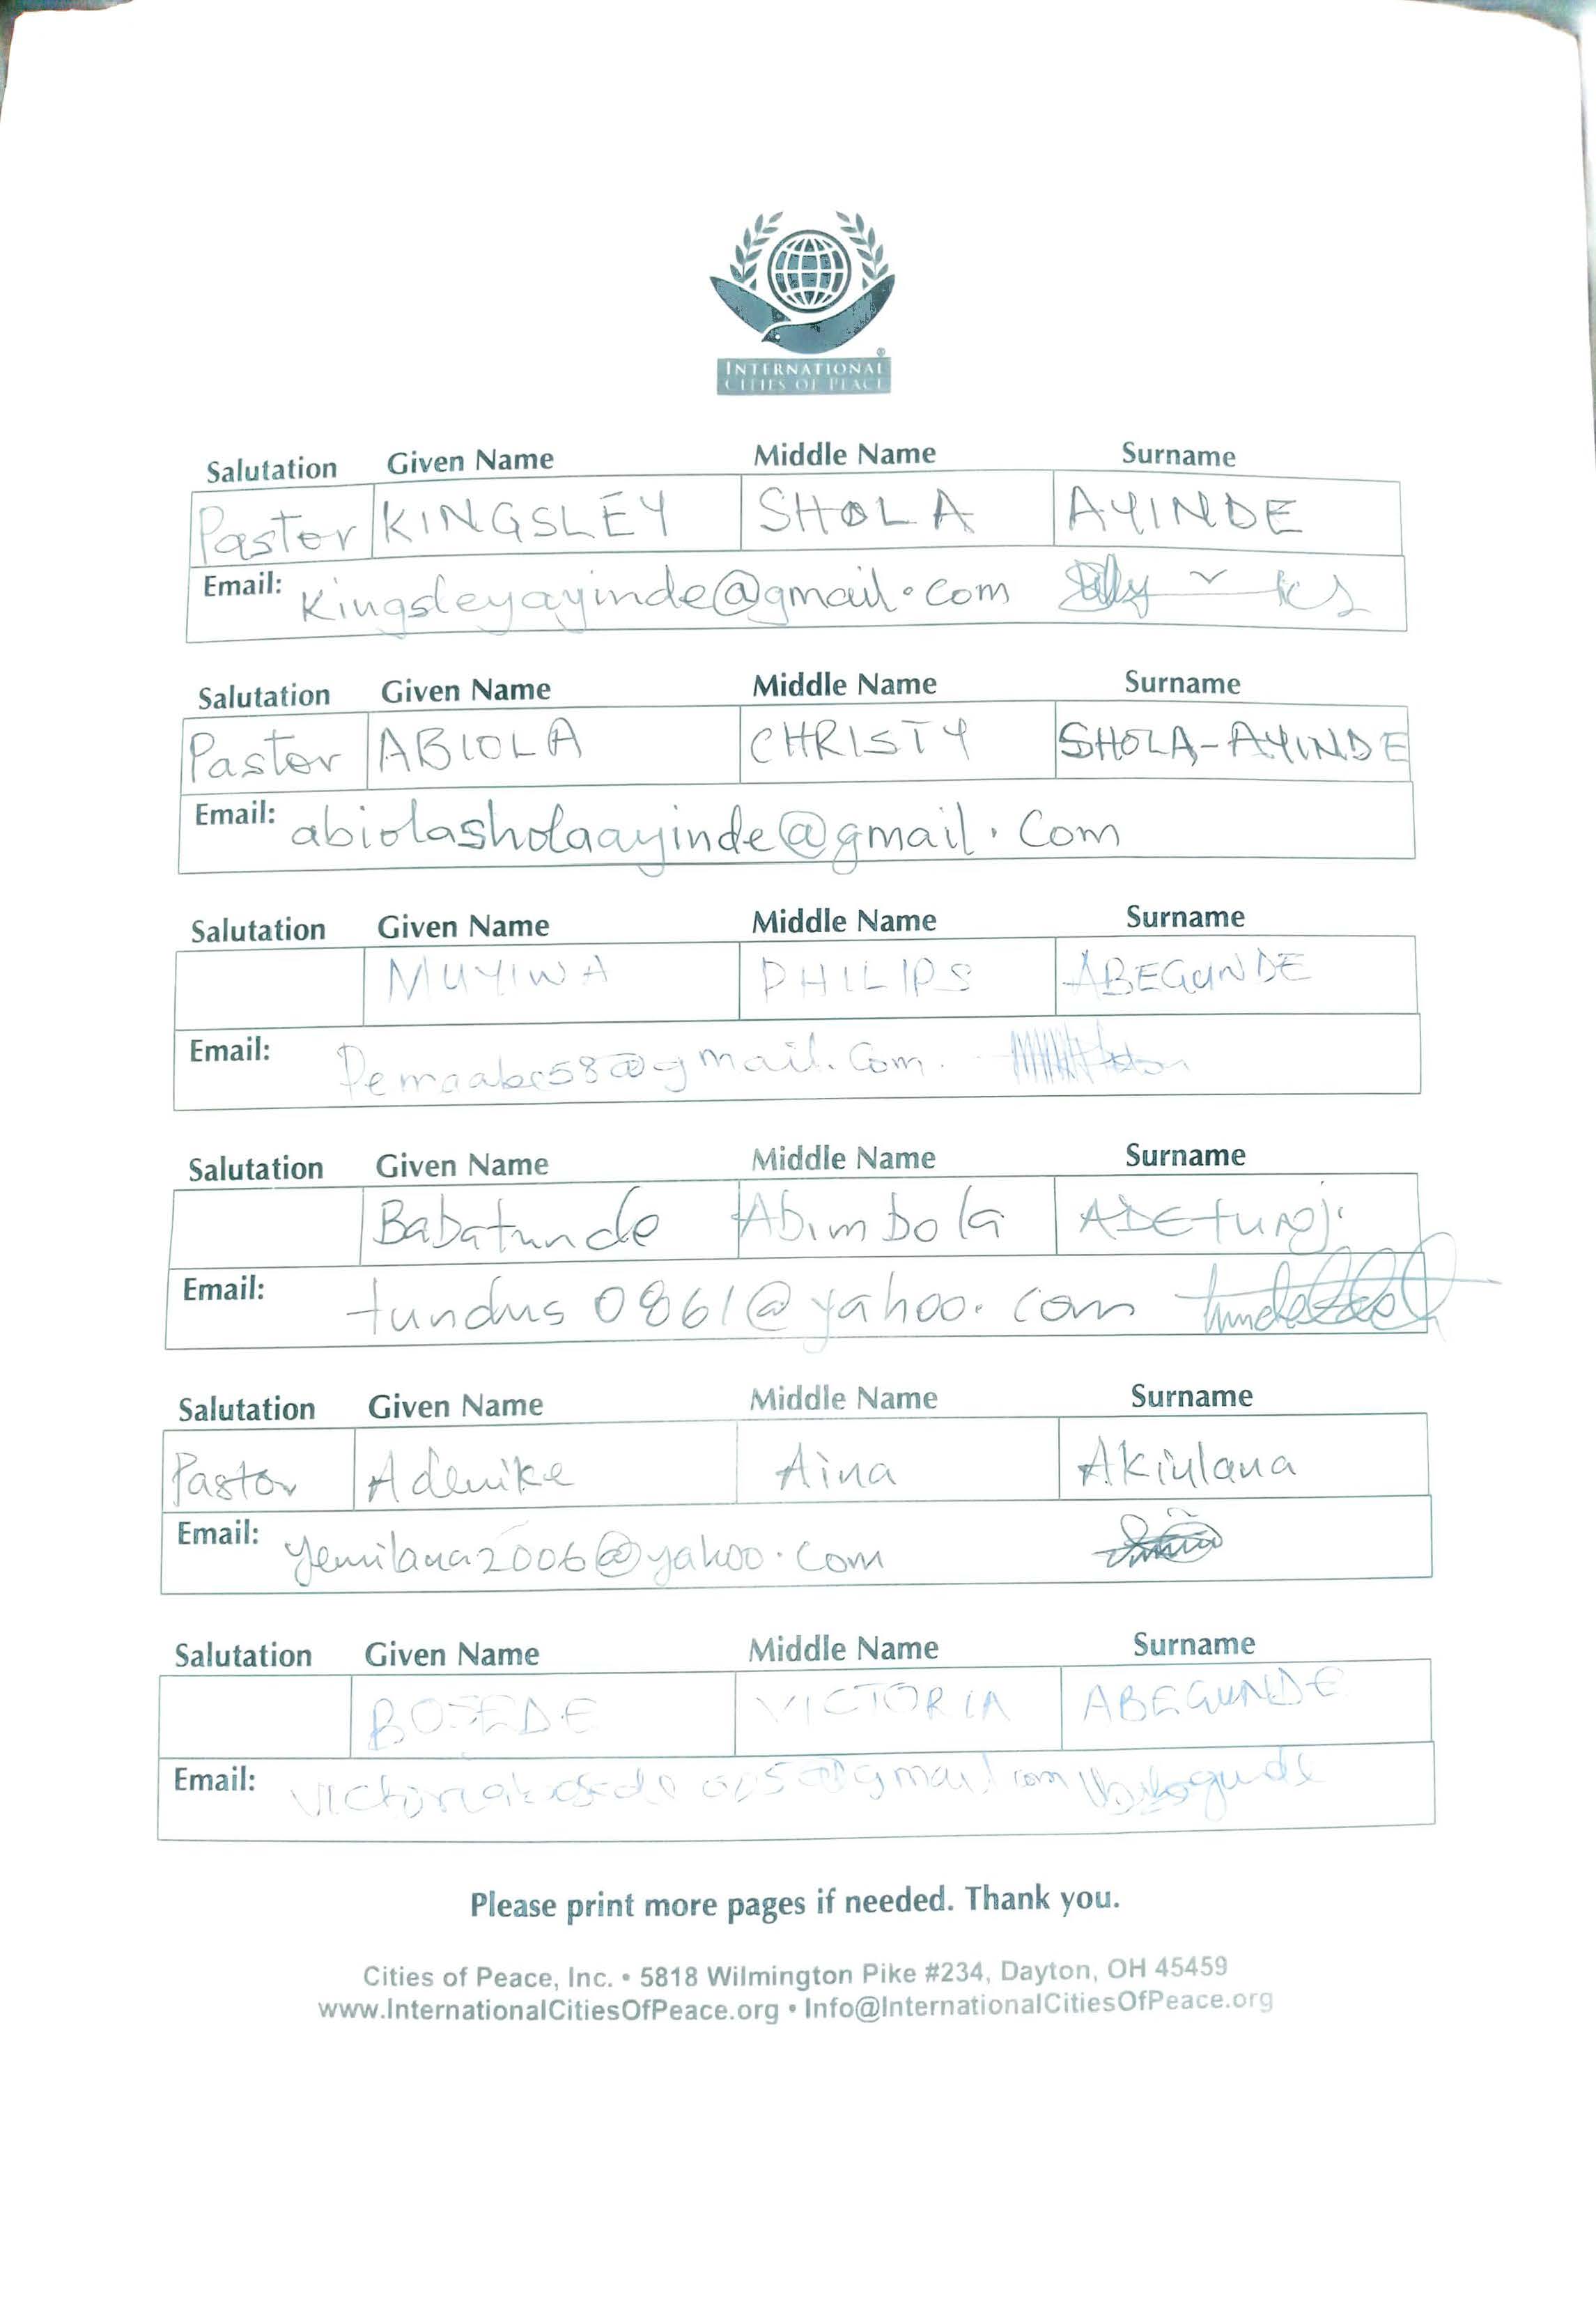 INTERNATIONAL
CITIES OF PEACE
Salutation Given Name Middle Name Surname
Pastor KINGSLEY SHOLA AYINDE
Email: Kingsleyayinde@gmail.com
Salutation Given Name Middle Name Surname
Pastor ABIOLA CHRISTY SHOLA-AYINDE
Email: abiolasholaayinde@gmail.Com
Salutation Given Name Middle Name Surname
MUYIWA PHILIPS ABEGUNDE
Email:
Salutation Given Name Middle Name Surname
Babatunde Abimbola ADEtunji
Email: tundus0861@yahoo.com
Salutation Given Name Middle Name Surname
Pastor Adenike Aina Akinlana
Email: yemilana2006@yahoo.com
Salutation Given Name Middle Name Surname
BOSEDE VICTORIA ABEGUNDE
Email:
Please print more pages if needed. Thank you.
Cities of Peace, Inc. • 5818 Wilmington Pike #234, Dayton, OH 45459
www.InternationalCitiesOfPeace.org • Info@InternationalCitiesOfPeace.org